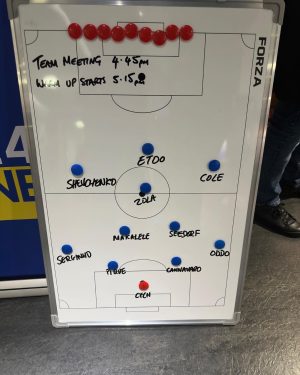 FORZA
TEAM MEETING 4.45pm
WARM UP STARTS 5.15pm
ETOO
SHEVCHENKO
COLE
ZOLA
MAKALELE
SEEDORF
SERGINHO
ODDO
CANNAVARO
CECH